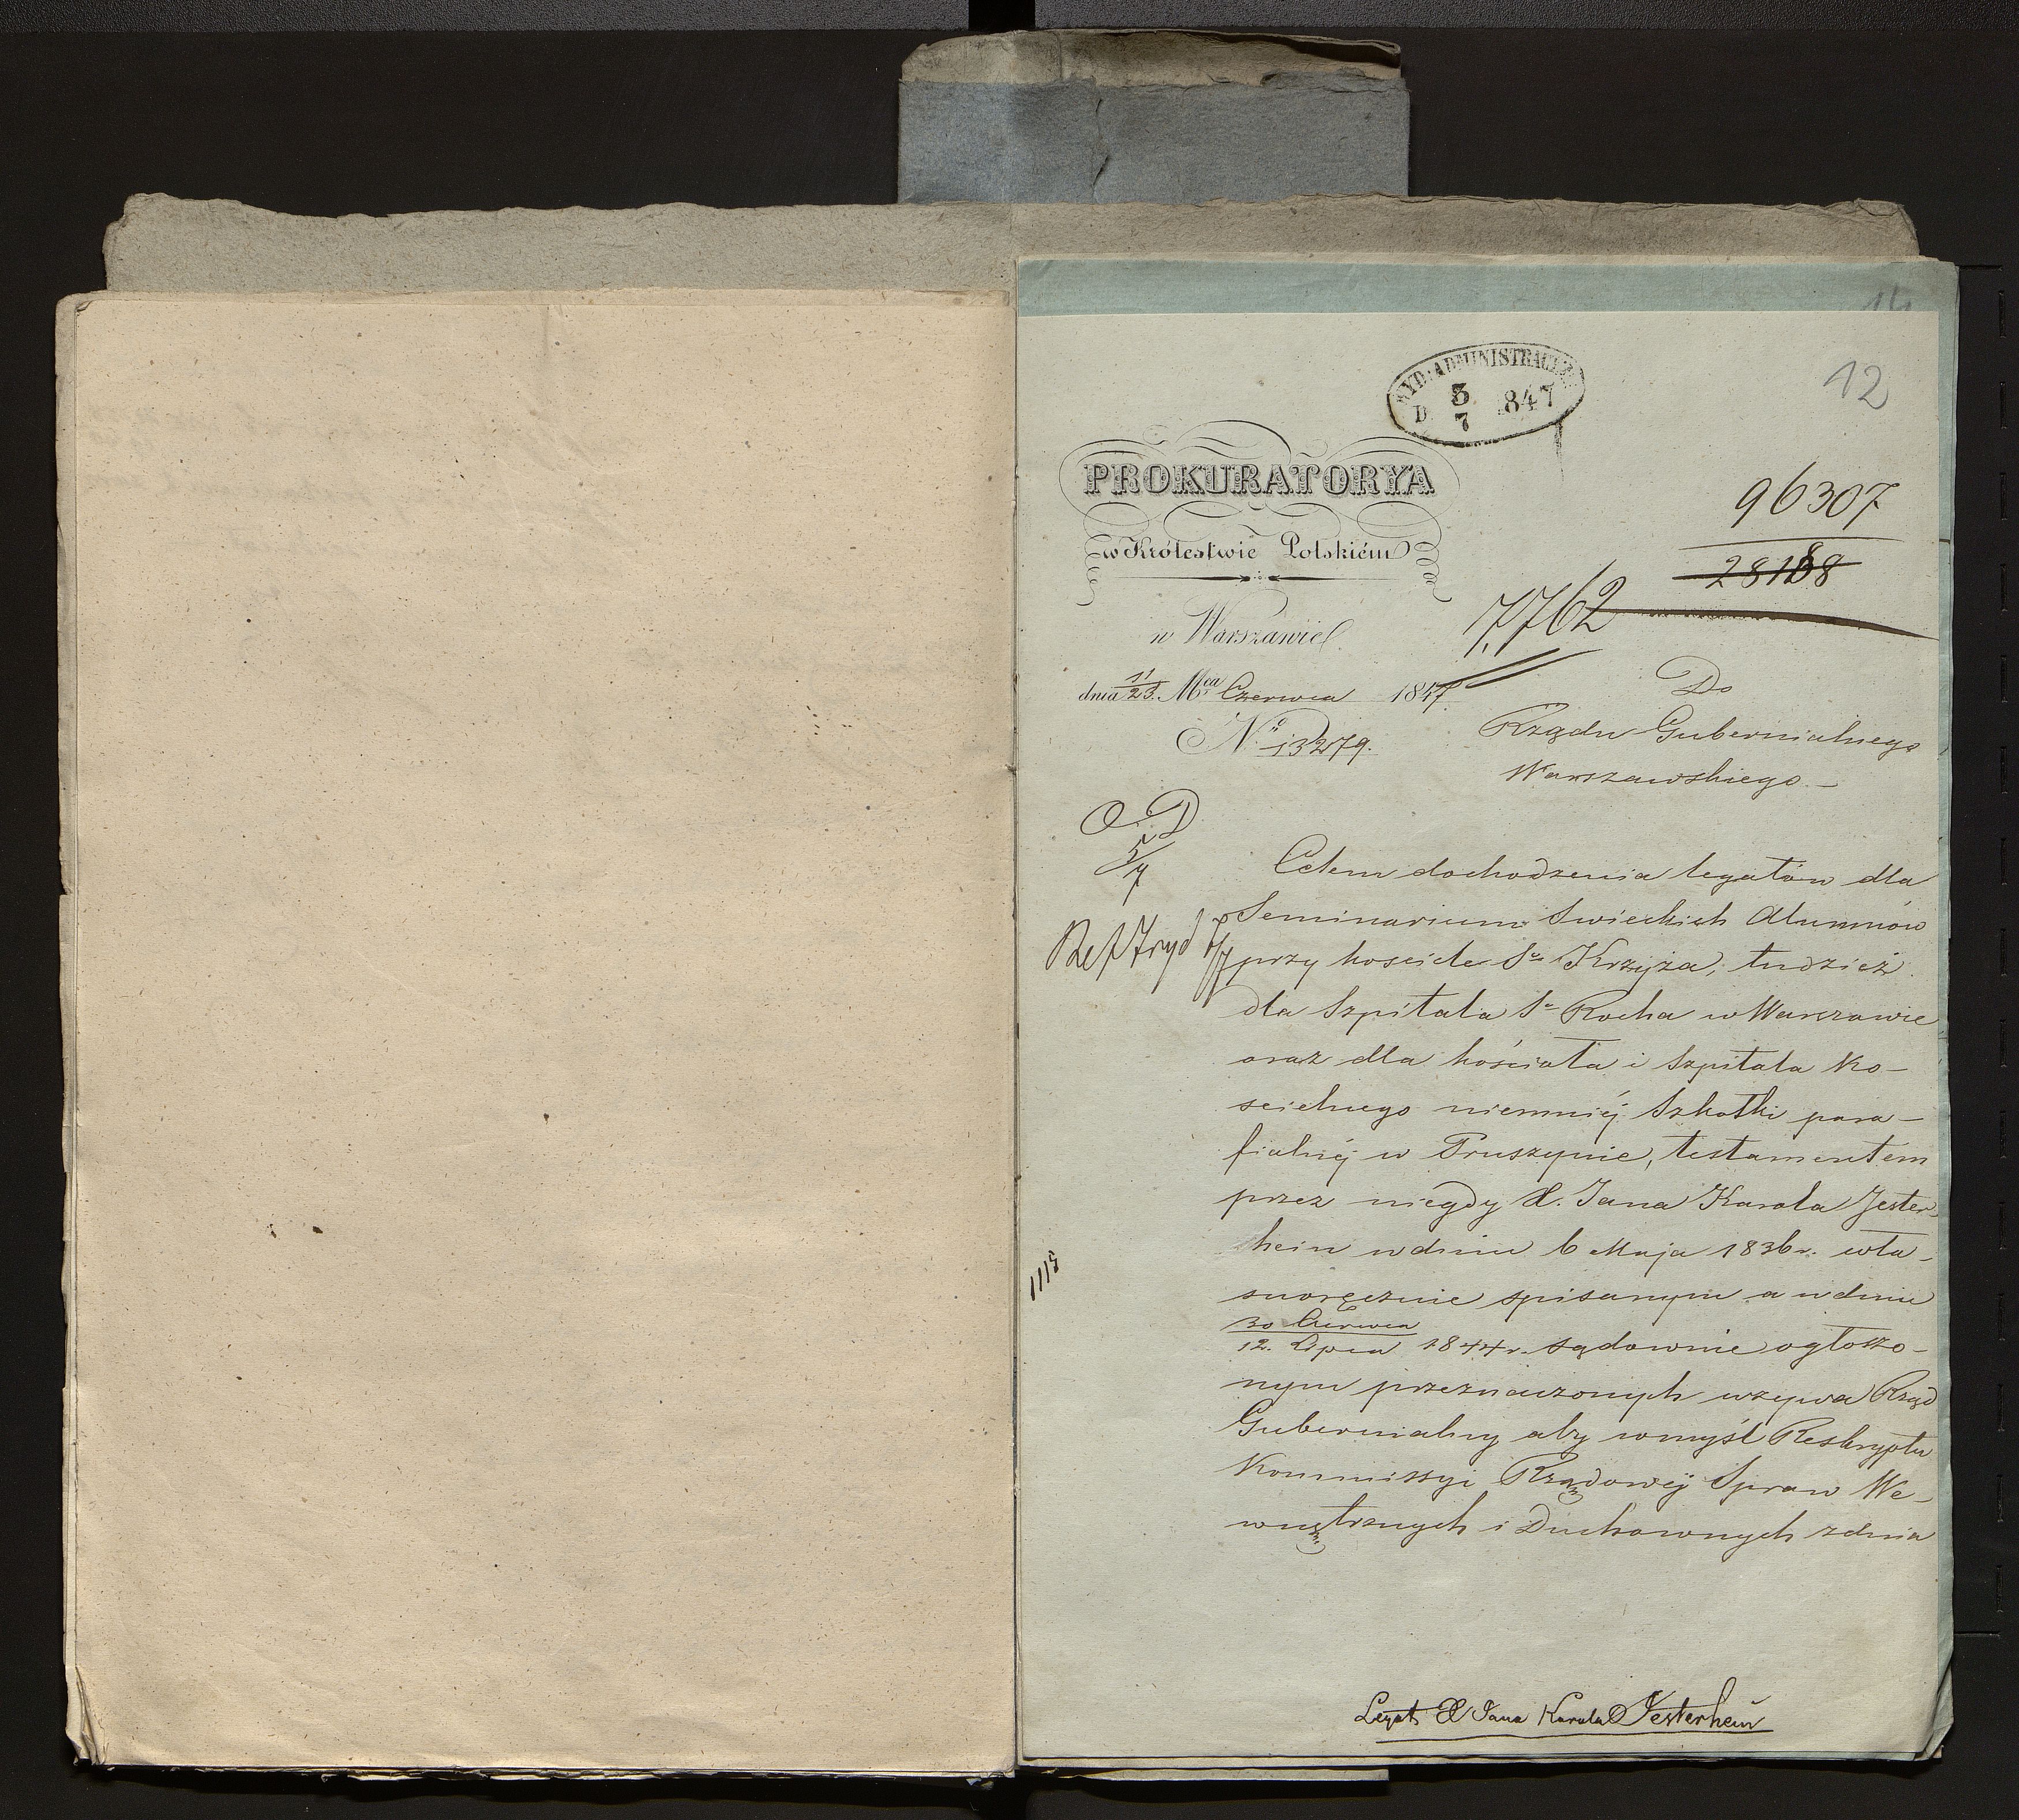 12
WYD. ADMINISTRACYI
D 3/7 1847
96307
28188
7762
PROKURATORYA
w Królestwie Polskiém
w Warszawie
dnia 11/23. Mca Czerwca 1847
No 13279.
Do
Rządu Gubernialnego
Warszawskiego —
O.D
5/7
Celem dochodzenia legatów dla
Seminarium Swieckich Alumnów
przy kosciele So Krzyża, tudzież
dla Szpitala So Rocha w Warszawie
oraz dla kościoła i Szpitala Ko-
scielnego niemniéj Szkołki para-
fialnéj w Pruszynie, testamentem
przez niegdy X. Jana Karola Jester-
hein w dniu 6 Maja 1836 r. wła-
snoręcznie spisanym a w dniu
30 Czerwca
12. Lipca 1844 r. sądownie ogłoszo-
nym przeznaczonych wzywa Rząd
Gubernialny aby w myśl Reskryptu
Kommissyi Rządowéj Spraw We-
wnętrznych i Duchownych z dnia
1115
Legat X Jana Karola Jesterhein